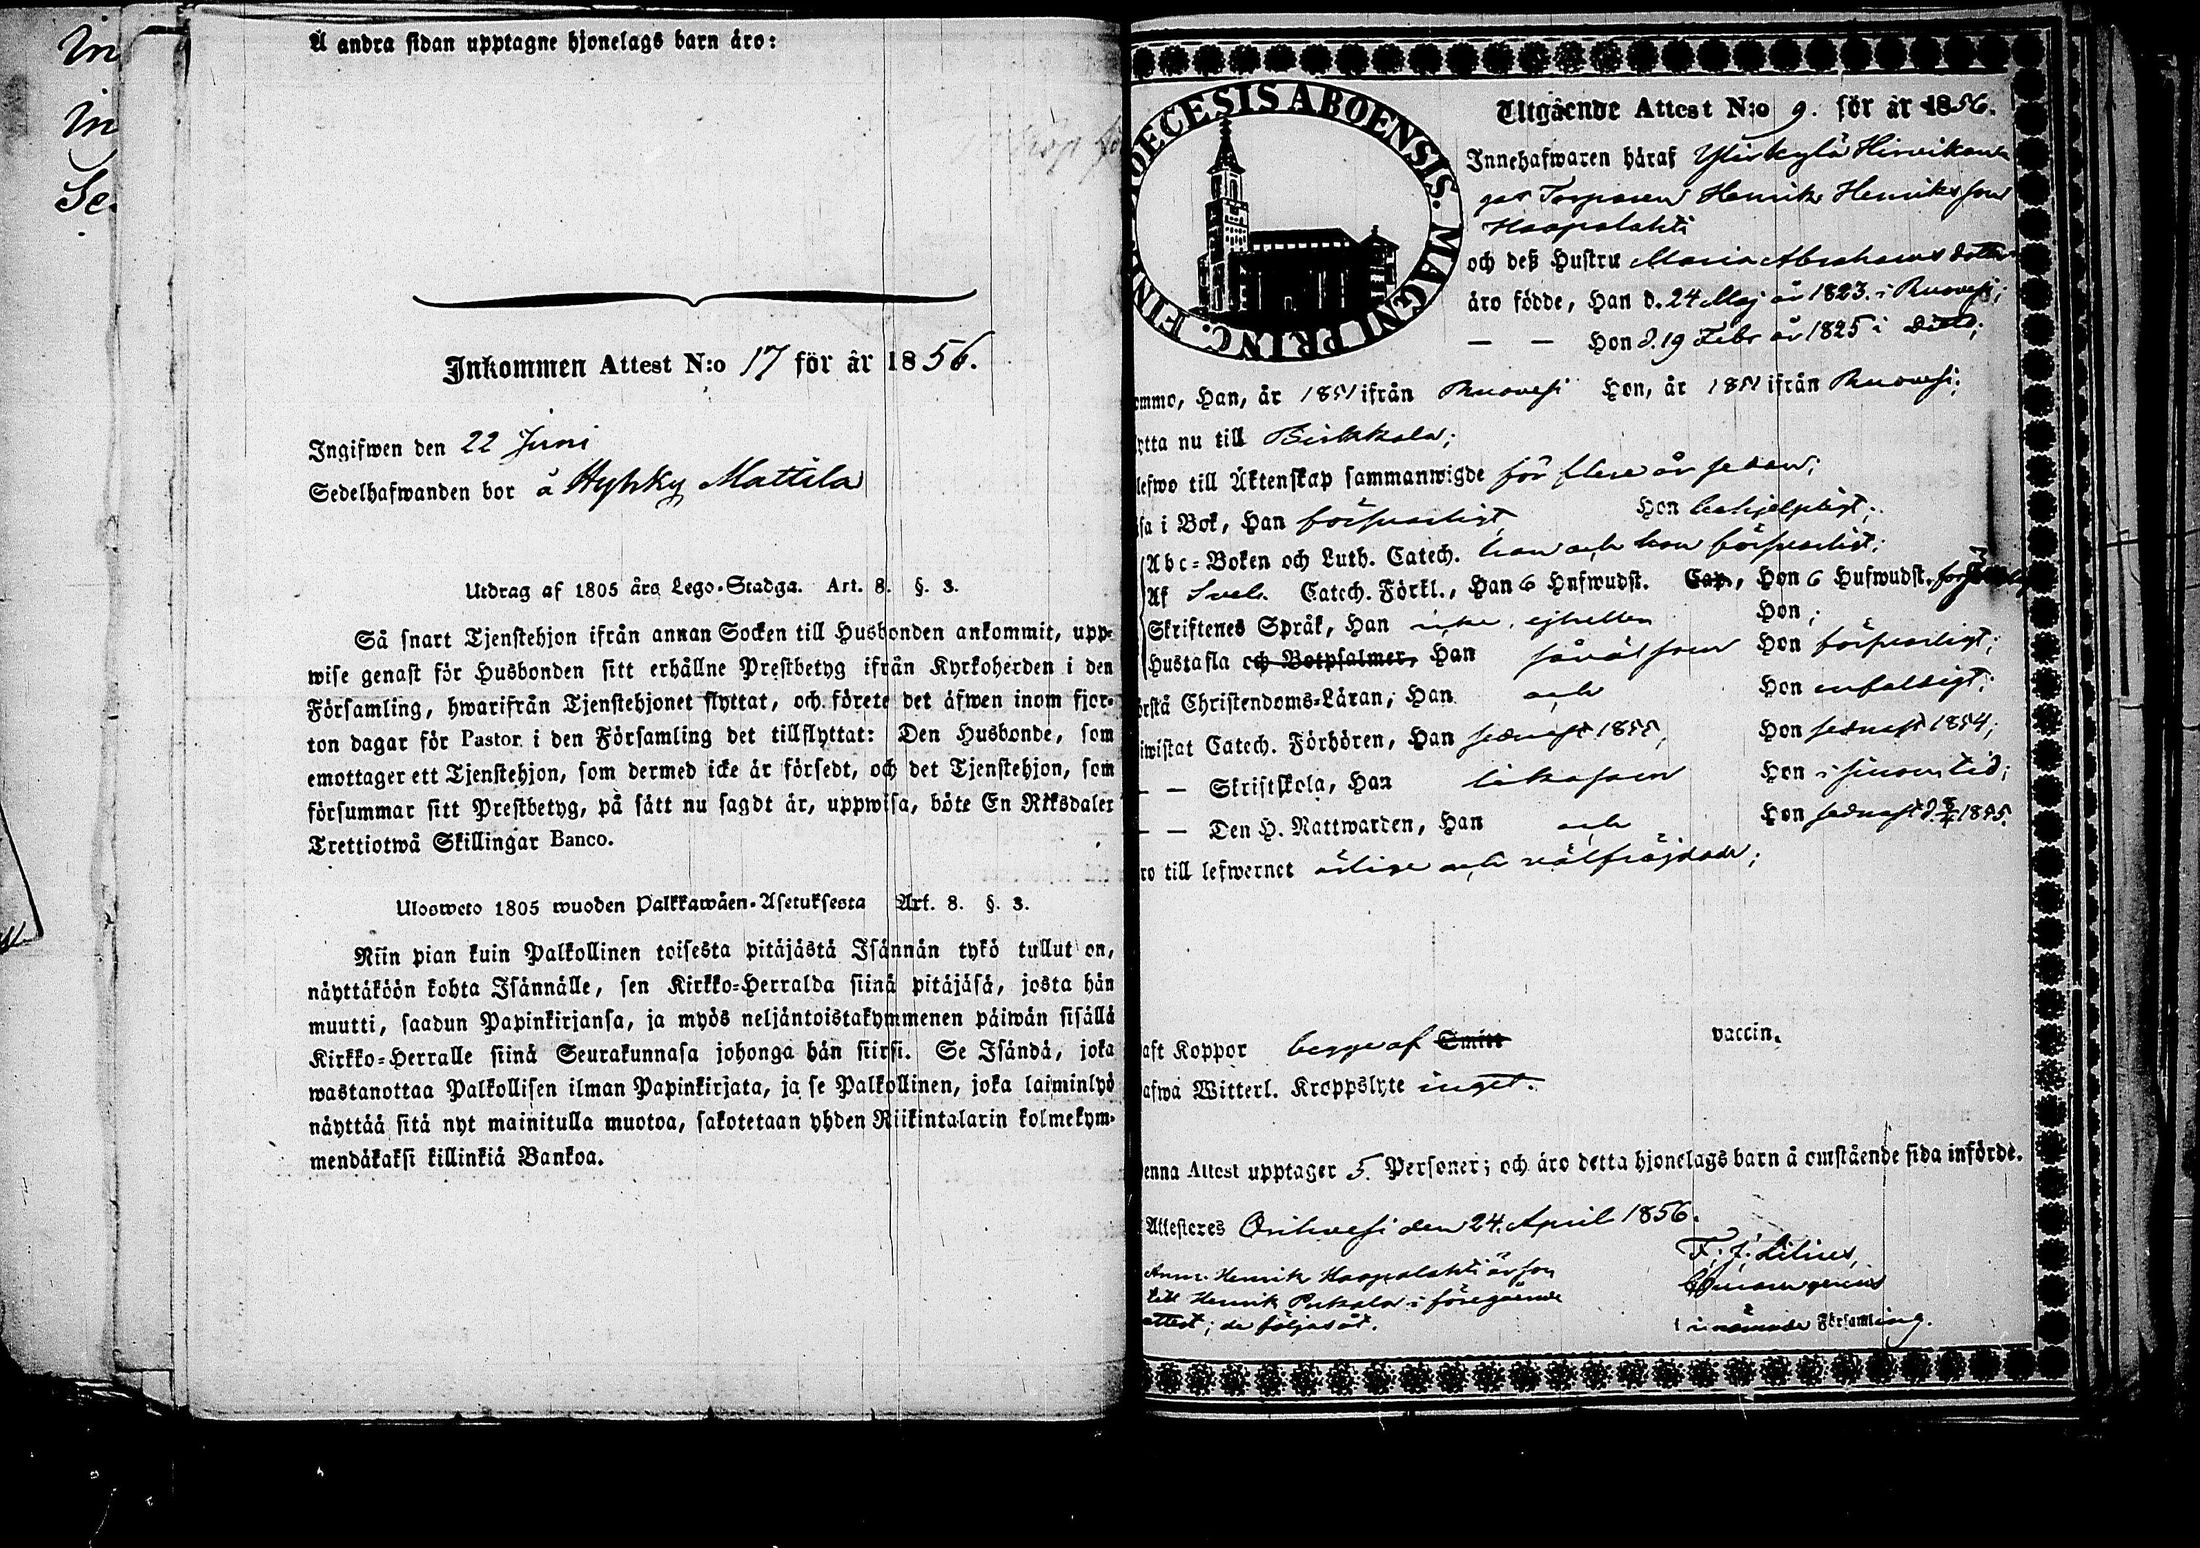 Å andra sidan upptagne hjonelags barn äro:
Inkommen Attest N:o 17 för år 1856.
Ingifwen den 22 Juni
Sedelhafwanden bor å Hyhky Mattila
Utdrag af 1805 års Lego-Stadga. Art. 8. §. 3.
Så snart Tjenstehjon ifrån annan Socken till Husbonden ankommit, upp-
wise genast för Husbonden sitt erhållne Prestbetyg ifrån Kyrkoherden i den
Församling, hwarifrån Tjenstehjonet flyttat, och förete det äfwen inom fjor-
ton dagar för Pastor i den Församling det tillflyttat: Den Husbonde, som
emottager ett Tjenstehjon, som dermed icke är försedt, och det Tjenstehjon, som
försummar sitt Prestbetyg, på sätt nu sagdt är, uppwisa, böte En Riksdaler
Trettiotwå Skillingar Banco.
Ulosweto 1805 wuoden Palkkawäen-Asetuksesta Art. 8. §. 3.
Niin pian kuin Palkollinen toisesta pitäjästä Isännän tykö tullut on,
näyttäköön kohta Isännälle, sen Kirkko-Herralda siinä pitäjäsä, josta hän
muutti, saadun Papinkirjansa, ja myös neljäntoistakymmenen päiwän sisällä
Kirkko-Herralle siinä Seurakunnasa johonga hän siirsi. Se Isändä, joka
wastanottaa Palkollisen ilman Papinkirjata, ja se Palkollinen, joka laiminlyö
näyttää sitä nyt mainitulla muotoa, sakotetaan yhden Riikintalarin kolmekym-
mendäkaksi killinkiä Bankoa.
OECESIS ABOENSIS. MAGNI PRINC. FIN
Utgående Attest N:o 9. för år 1856.
Innehafwaren häraf Ylistylä Hirvikan
gas Torparen Henrik Henriksson
Haapalahti
och deß Hustru Maria Abrahamsdotter
äro födde, Han d. 24 Maj år 1823. i Ruovesi;
— — Hon d. 19 Febr år 1825 i ditto;
ommo, Han, år 1851 ifrån Ruovesi Hon, år 1851 ifrån Ruovesi;
ytta nu till Birkkala;
lefwo till Äktenskap sammanwigde för flere år sedan;
sa i Bok, Han försvarligt, Hon behjelpligt;
Abc-Boken och Luth. Catech. han och hon försvarligt;
Af Sveb. Catech. Förkl., Han 6 Hufwudst. Cap., Hon 6 Hufwudst.
Skriftenes Språk, Han icke, ejheller Hon;
Hustafla och Botpsalmer, Han såväl som Hon försvarligt;
örstå Christendoms-Läran, Han och Hon enfaldigt;
iwistat Catech. Förhören, Han sednast 1855, Hon sednast 1854;
— — Skriftskola, Han likasom Hon i sinom tid;
— — Den H. Nattwarden, Han och Hon sednast d. 1855.
ro till lefwernet ärlige och välfräjdade;
aft Koppor begge af Smitt vaccin.
afwa Witterl. Kroppslyte inget.
enna Attest upptager 5. Personer; och äro detta hjonelags barn å omstående sida införde.
Attesteres Orihvesi den 24. April 1856.
F. J. Lilius,
Anm. Henrik Haapalahti är son
till Henrik Pukala i föregående
attest; de följas åt.
i nämnde Församling.